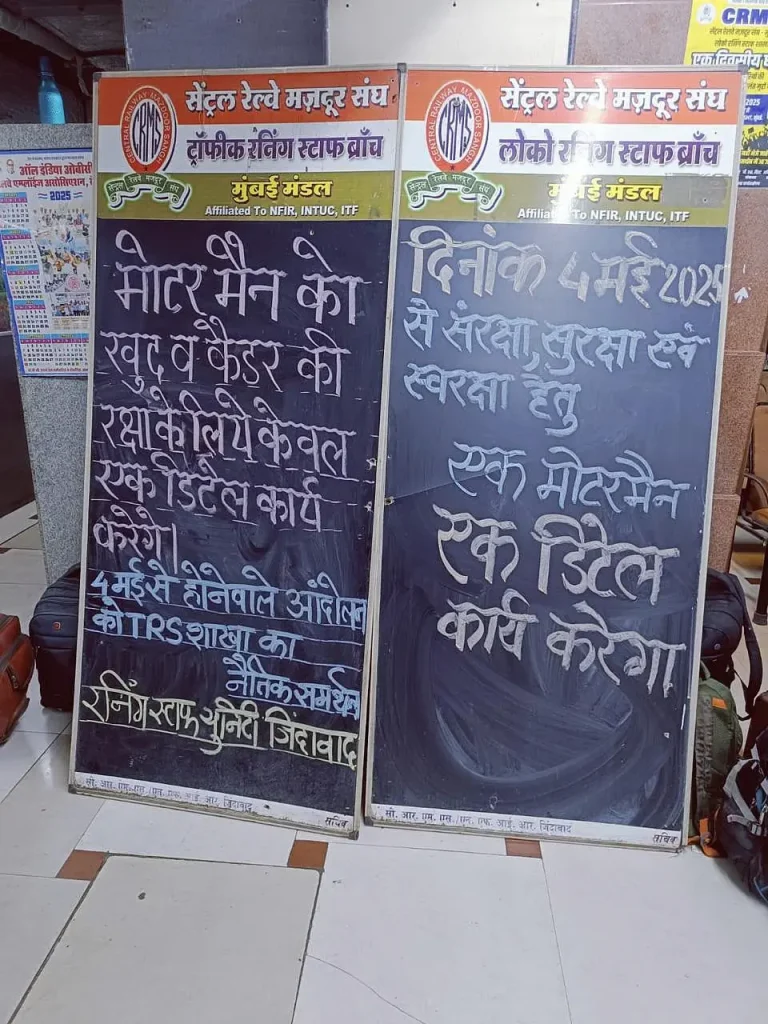 सेंट्रल रेल्वे मज़दूर संघ
ट्रॉफीक रनिंग स्टाफ ब्राँच
मुंबई मंडल
Affiliated To NFIR, INTUC, ITF
CENTRAL RAILWAY MAZDOOR SANGH
CRMS
सेन्ट्रल रेलवे मजदूर संघ
मोटर मैन को
खुद व कैडर की
रक्षा के लिये केवल
एक डिटेल कार्य
करेंगे।
4 मई से होनेवाले आंदोलन
को TRS शाखा का
नैतिक समर्थन
रनिंग स्टाफ युनिटी जिंदाबाद
सी. आर. एम. एस./एन. एफ. आई. आर. ज़िंदाबाद
सचिव
सेंट्रल रेल्वे मज़दूर संघ
लोको रनिंग स्टाफ ब्राँच
मुंबई मंडल
Affiliated To NFIR, INTUC, ITF
CENTRAL RAILWAY MAZDOOR SANGH
CRMS
सेन्ट्रल रेलवे मजदूर संघ
दिनांक 4 मई 2025
से संरक्षा, सुरक्षा एवं
स्वरक्षा हेतु
एक मोटरमैन
एक डिटेल
कार्य करेगा
सी. आर. एम. एस./एन. एफ. आई. आर. ज़िंदाबाद
सचिव
ऑल इंडिया ओबीसी
2025
CRM
एक दिवसीय